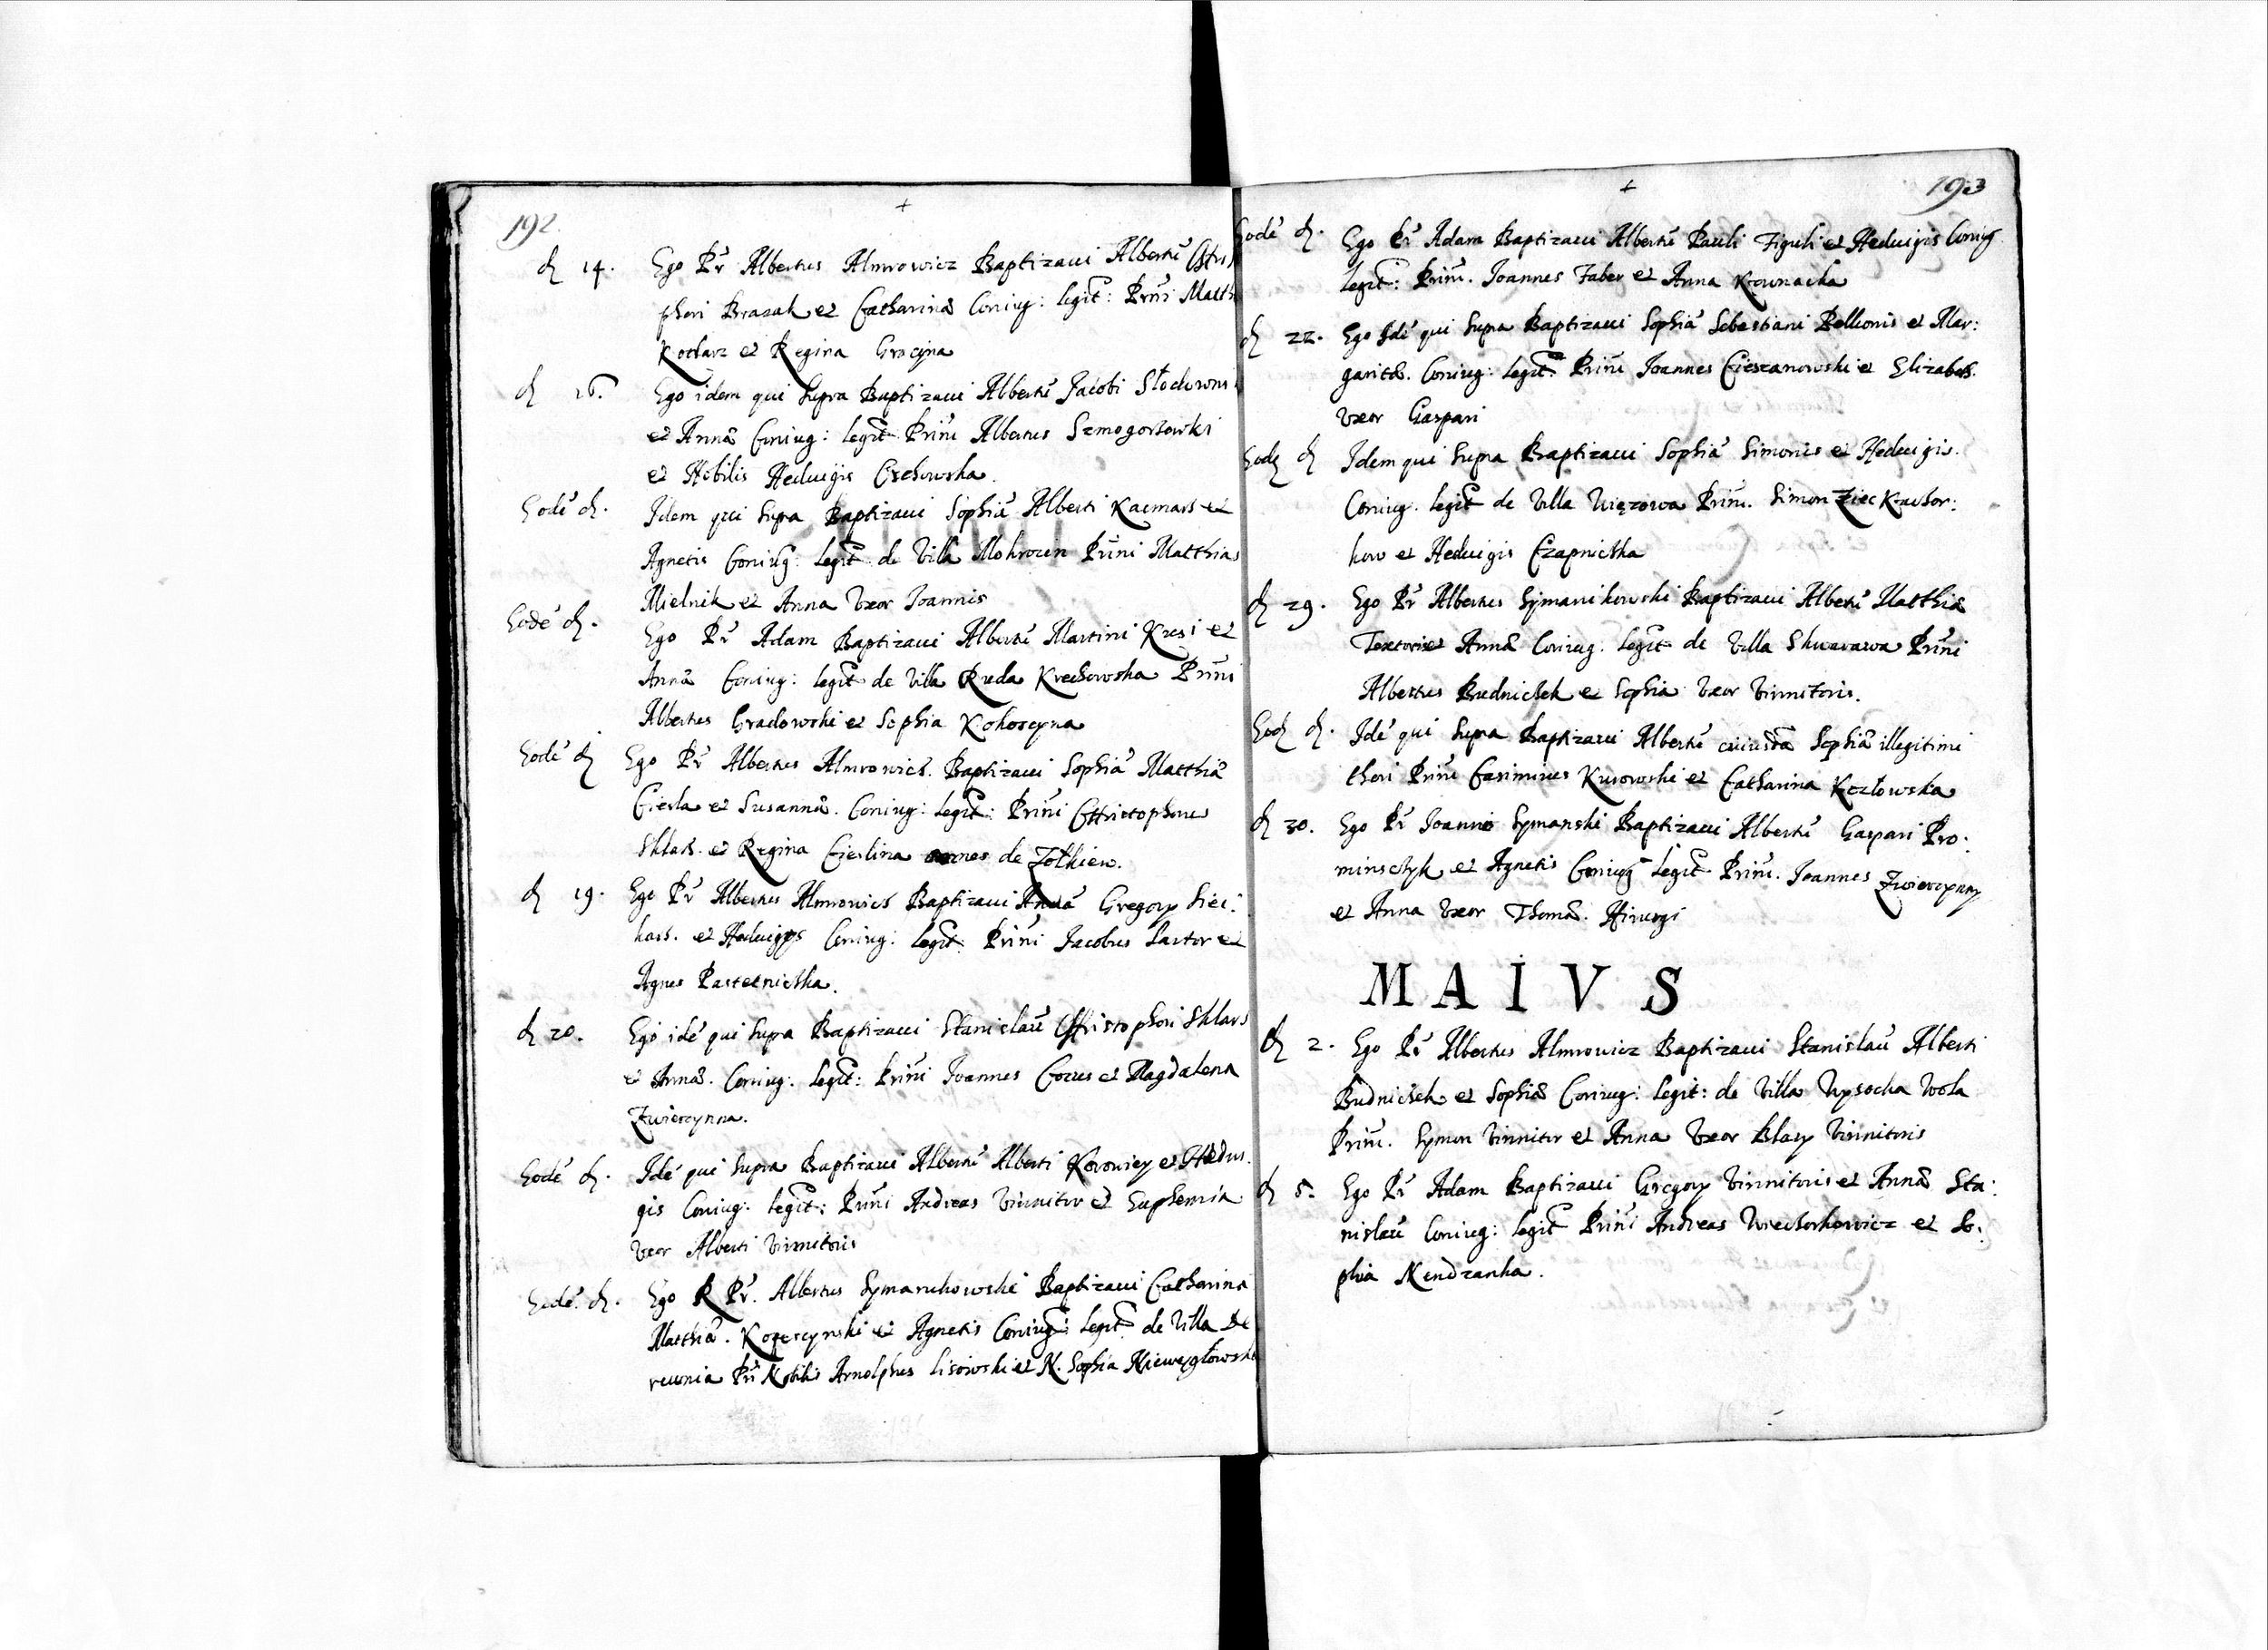 192.
+
d 14. Ego Pr Albertus Almrowicz Baptizaui Albertũ Chri
phori Brazak et Catharinæ Coniug: legit: Prini Matth
Kotlarz et Regina Grocyna
d 16. Ego idem qui supra Baptizaui Albertũ Jacobi Słodowni
et Annæ Coniug: legit Prini Albertus Szmogorzowski
et Nobilis Heduigis Czchowska.
Eodẽ d. Idem qui supra Baptizaui Sophiã Alberti Kacmars et
Agnetis Coniug: legit de Villa Mokrocin Prini Matthias
Mielnik et Anna Vxor Joannis
Eodẽ d. Ego Pr Adam Baptizaui Albertũ Martini Kresi et
Annæ Coniug: legit de Villa Ruda Krechowska Prini
Albertus Gradowski et Sophia Kokoscyna
Eodẽ d Ego Pr Albertus Almrowicz. Baptizaui Sophiã Matthiæ
Ciesla et Susannæ. Coniug: legit: Prini Christophorus
Sklars. et Regina Cieslina omnes de Zolkiew.
d 19. Ego Pr Albertus Almrowics Baptizaui Annã Gregory Siec:
kars. et Heduigis Coniug: legit: Prini Jacobus Sartor et
Agnes Pasternicka.
d 20. Ego idẽ qui supra Baptizaui Stanislaũ Christophori Sklars
et Annæ. Coniug: legit: Prini Joannes Cocus et Magdalena
Zwierzynna.
Eodẽ d. Idẽ qui supra Baptizaui Albertũ Alberti Kowoniey et Hedui
gis Coniug: legit: Prini Andreas Vinnitor et Euphemia
Vxor Alberti Vinnitoris
Eodẽ. d. Ego R Pr. Albertus Symanikowski Baptizaui Catharinã
Matthiæ. Kozercynski et Agnetis Coniug: legit de Villa De
rewnia Pri Nobilis Arnolphus Lisowski et N. Sophia Niewęgłowska
193
+
Eodẽ d. Ego Pr Adam Baptizaui Albertũ Pauli Figuli et Heduigis Coniug
legit: Prini. Joannes Faber et Anna Krawnacka
d 22. Ego Idẽ qui supra Baptizaui Sophiã Sebastiani Pellionis et Mar:
garitæ. Coniug: legit: Prini Joannes Cieszanowski et Elizabeth.
Vxor Gaspari
Eodẽ d Idem qui supra Baptizaui Sophiã Simonis et Heduigis.
Coniug. legit de Villa Więzowa Prini. Simon Ziec Krachor:
kow et Heduigis Czapnicka
d 29. Ego Pr Albertus Symanikowski Baptizaui Albertũ Matthiæ
Textoris et Annæ Coniug. legit de Villa Skwarawa Prini
Albertus Budnicsek et Sophia Vxor Vinnitoris.
Eodẽ d. Idẽ qui supra Baptizaui Albertũ cuiusdã Sophiæ illegitimi
thori Prini Casimirus Kurowski et Catharina Kozlowska
d 30. Ego Pr Joannes Symanski Baptizaui Albertũ Gaspari Pro:
minsczyk et Agnetis Coniug legit Prini. Joannes Zwierzynny
et Anna Vxor Thomæ. Hirurgi
MAIVS
d 2. Ego Pr Albertus Almrowicz Baptizaui Stanislaũ Alberti
Budnicsek et Sophiæ Coniug: legit: de Villa Wysocka Wola
Prini. Symon Vinnitor et Anna Vxor Blasy Vinnitoris
d 5. Ego Pr Adam Baptizaui Gregory Vinnitoris et Annæ Sta:
nislaũ Coniug: legit Prini Andreas Wiechorkowicz et So:
phia Nendzanka.